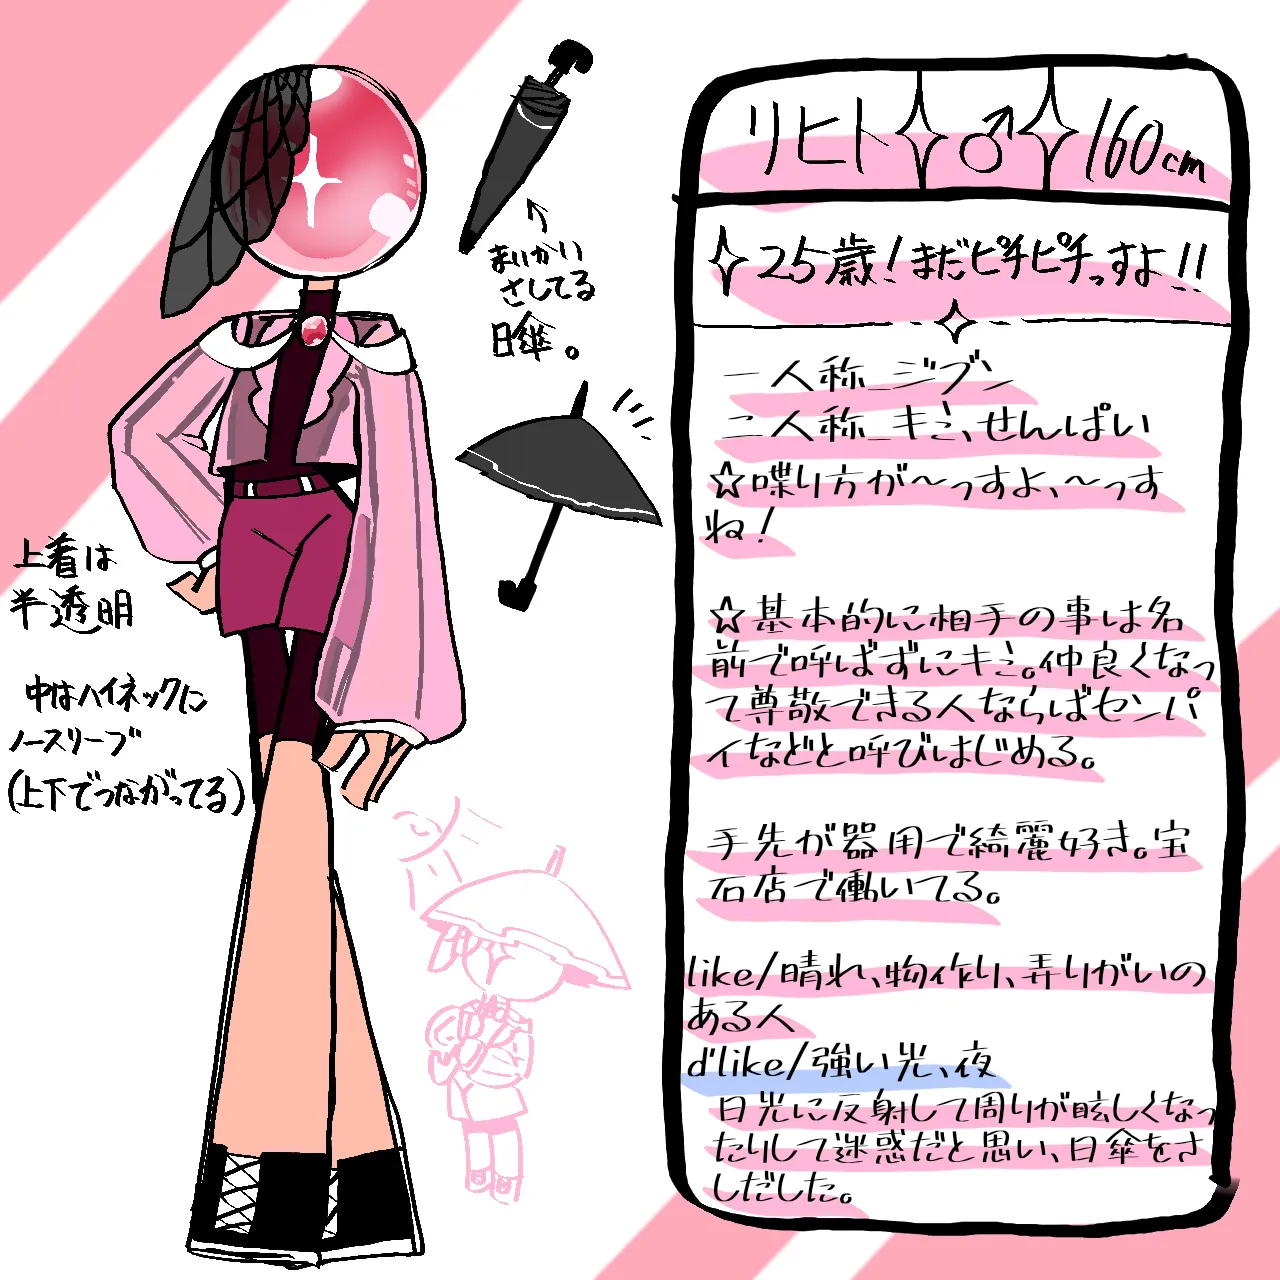 リヒト ♂ 160cm
25歳！まだピチピチっすよ!!
一人称_ジブン
二人称_キミ、せんぱい
☆喋り方が〜っすよ、〜っす
ね！
☆基本的に相手の事は名
前で呼ばずにキミ。仲良くなっ
て尊敬できる人ならばセンパ
イなどと呼びはじめる。
手先が器用で綺麗好き。宝
石店で働いてる。
like/晴れ、物作り、弄りがいの
ある人
d'like/強い光、夜
日光に反射して周りが眩しくなっ
たりして迷惑だと思い、日傘をさ
しだした。
まいかい
さしてる
日傘。
上着は
半透明
中はハイネックに
ノースリーブ
(上下でつながってる)